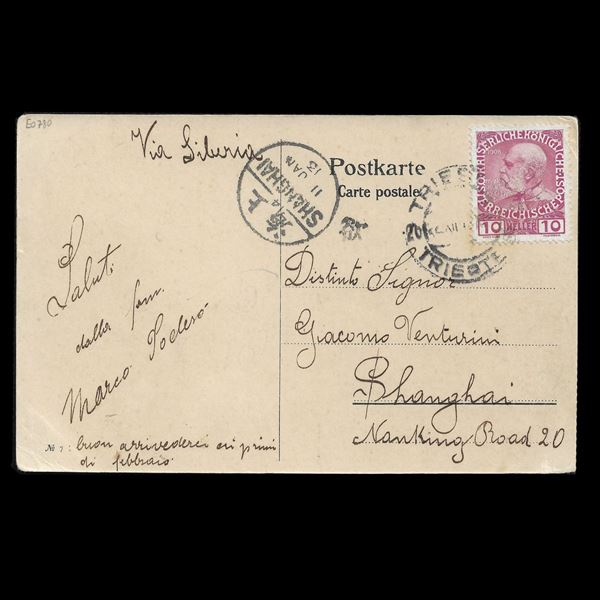 E0780
Via Siberia
Postkarte
Carte postale
SHANGHAI
11 JAN
13
上海
TRIEST
TRIESTE
1908
10 HELLER 10
Saluti
dalla fam.
Marco Toderó
Nº 7: buon arrivederci ai primi
di febbraio
Distinto Signor
Giacomo Venturini
Shanghai
Nanking Road 20